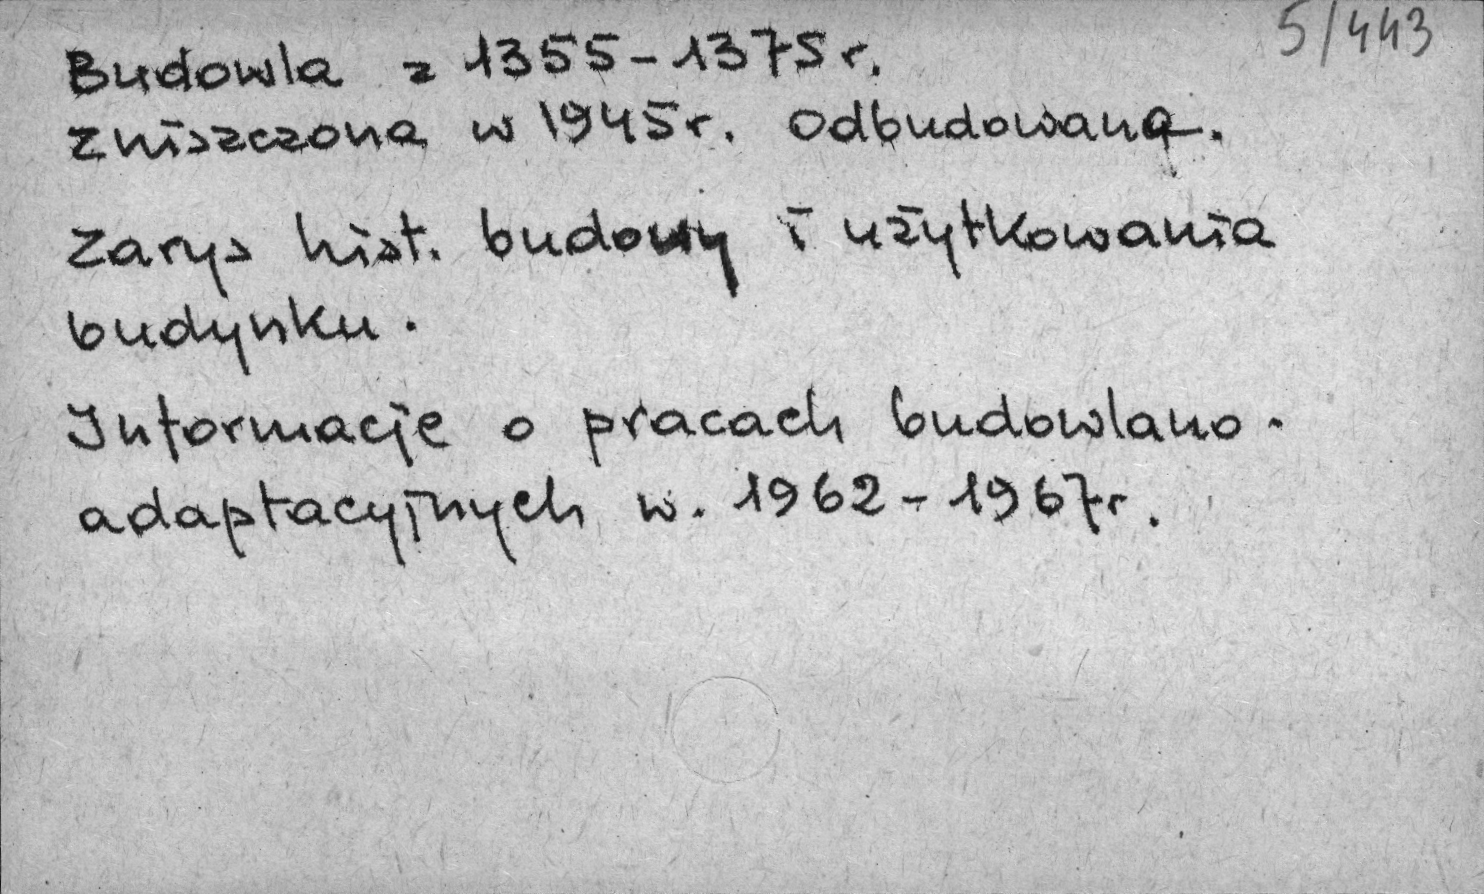 5/443
Budowla z 1355-1375 r.
Zniszczona w 1945 r. Odbudowana.
Zarys hist. budowy i użytkowania
budynku.
Informacje o pracach budowlano-
adaptacyjnych w. 1962-1967 r.